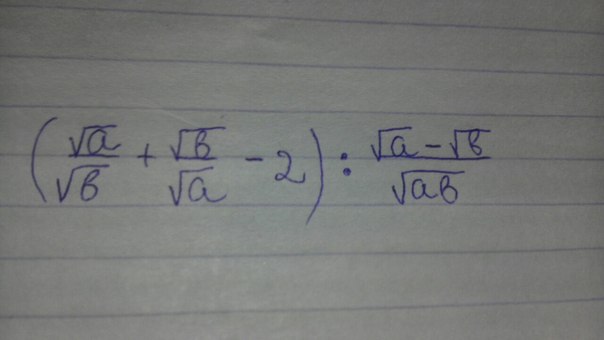 (√a/√b + √b/√a - 2) : (√a - √b)/√ab